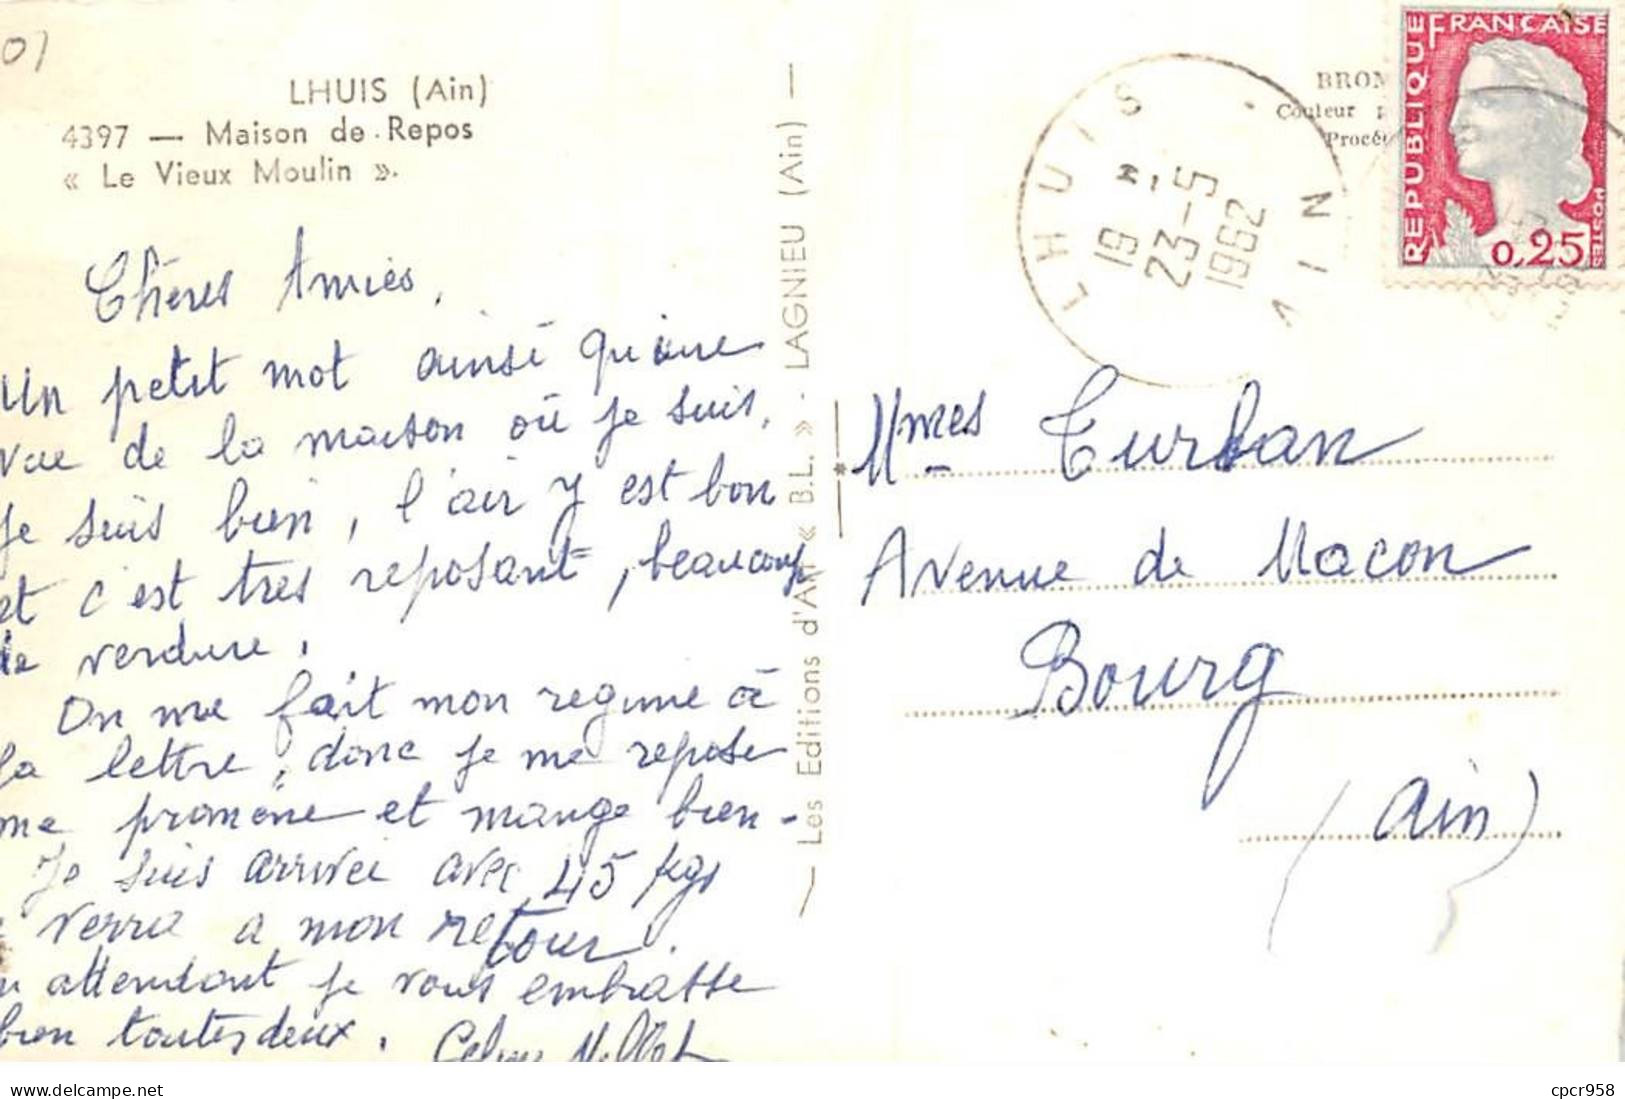 01
LHUIS (Ain)
4397 — Maison de Repos
« Le Vieux Moulin ».
Chères Amies,
Un petit mot ainsi qu'une
vue de la maison où je suis,
Je suis bien, l'air y est bon
et c'est tres reposant, beaucoup
de verdure.
On me fait mon regime à
la lettre, donc je me repose
me promène et mange bien -
Je suis arrivée avec 45 kgs
verra a mon retour.
attendant je vous embrasse
bien toutes deux.
— Les Editions d'Art « B.L. » - LAGNIEU (Ain) —
LHUIS - AIN
19 H
23-5
1962
BROM
Couleur
Procé
REPUBLIQUE FRANÇAISE
POSTES
0,25
Mmes Turban
Avenue de Macon
Bourg
(Ain)
delcampe.net
cpcr958